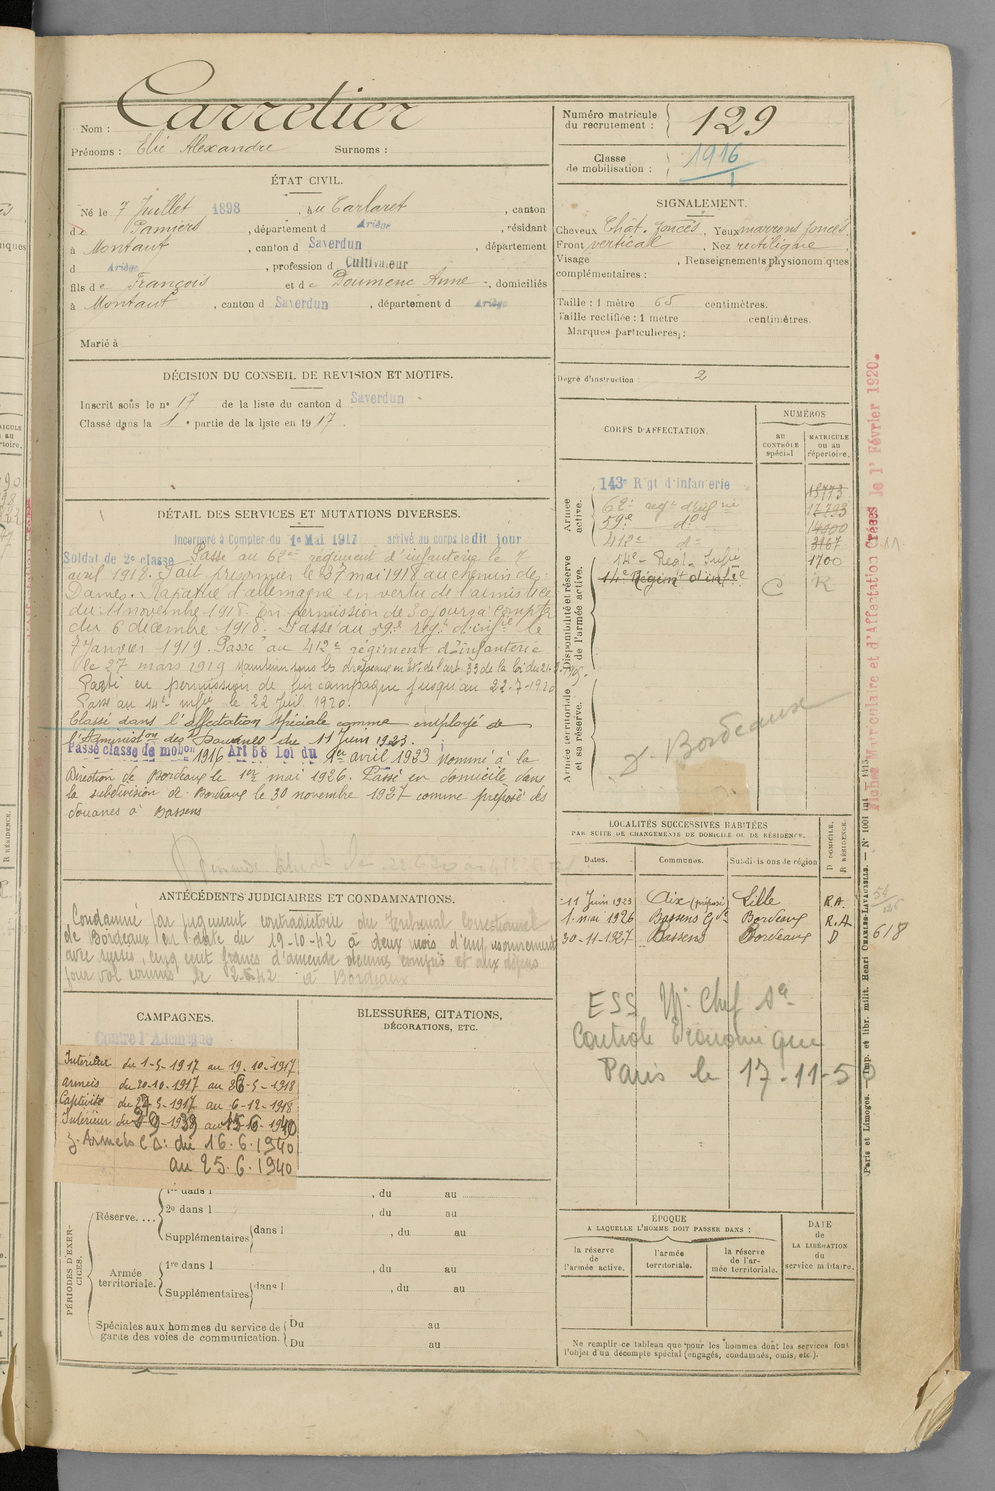 Nom : Carretier
Prénoms : Elie Alexandre Surnoms :
Numéro matricule du recrutement : 129
Classe de mobilisation : 1916
ÉTAT CIVIL.
Né le 7 Juillet 1898, au Carlaret, canton
de Pamiers, département d Ariège, résidant
à Montaut, canton d Saverdun, département
d Ariège, profession d Cultivateur
fils de François et de Doumenc Anne, domiciliés
à Montaut, canton d Saverdun, département d Ariège
Marié à
SIGNALEMENT.
Cheveux Chât. foncés, Yeux marrons foncés
Front vertical, Nez rectiligne,
Visage , Renseignements physionomiques
complémentaires :
Taille : 1 mètre 65 centimètres.
Taille rectifiée : 1 mètre centimètres.
Marques particulières :
Degré d'instruction : 2
DÉCISION DU CONSEIL DE REVISION ET MOTIFS.
Inscrit sous le n° 17 de la liste du canton d Saverdun
Classé dans la 1e partie de la liste en 1917
DÉTAIL DES SERVICES ET MUTATIONS DIVERSES.
Incorporé à Compter du 1e Mai 1917 arrivé au corps le dit jour
Soldat de 2e classe Passé au 62e régiment d'infanterie le 7
avril 1918. Fait prisonnier le 27 mai 1918 au chemin des
Dames. Rapatrié d'allemagne en vertu de l'armistice
du 11 novembre 1918. En permission de 30 jours à compter
du 6 décembre 1918. Passé au 59e reg. d'infie le
7 Janvier 1919. Passé au 412e régiment d'infanterie
le 27 mars 1919 Maintenu sous les drapeaux en Ve de l'art. 33 de la loi du 21-3-
Parti en permission de fin campagne jusqu'au 22-7-1920
Passé au 14e infie le 22 Juil. 1920.
Classé dans l'affectation spéciale comme employé de
l'Administon des Douanes du 11 Juin 1923
Passé classe de mobon 1916 Art 58 Loi du 1er avril 1923 Nommé à la
Direction de Bordeaux le 1er mai 1926. Passé en domicile dans
la subdivision de Bordeaux le 30 novembre 1927 comme préposé des
douanes à Bassens
CORPS D'AFFECTATION.
NUMÉROS
AU CONTRÔLE spécial
MATRICULE OU AU répertoire.
Armée active.
143e Rgt d'infanterie 18773
62e regt d'infie 12793
59e do 14900
412e do 3167
Disponibilité et réserve de l'armée active.
14e Regt Infie 1700
14e Régimt d'infie C R
Armée territoriale et sa réserve.
D. Bordeaux
Fiches Matriculaire et d'Affectation Créées le 1r Février 1920.
ANTÉCÉDENTS JUDICIAIRES ET CONDAMNATIONS.
Condamné par jugement contradictoire du Tribunal Correctionnel
de Bordeaux en date du 19-10-42 à deux mois d'emprisonnement
avec sursis, cinq cent francs d'amende décimes compris et aux dépens
pour vol commis le 2-5-42 à Bordeaux
LOCALITÉS SUCCESSIVES HABITÉES
PAR SUITE DE CHANGEMENTS DE DOMICILE OU DE RÉSIDENCE.
Dates. Communes. Subdivisions de région D DOMICILE. R RÉSIDENCE.
11 Juin 1923 Aix (préposé) Lille R.A.
1. mai 1926 Bassens Gde Bordeaux R.A
30-11-1927 Bassens Bordeaux D 618
ESS
Contrôle Economique
Paris le 17-11-50
CAMPAGNES.
Contre l'Allemagne
Intérieur du 1-5-1917 au 19-10-1917
armées du 20-10-1917 au 26-5-1918
Captivité du 27-5-1917 au 6-12-1918
Intérieur du 2-9-1939 au 15-6-1940
Z. Armées CD: du 16.6.1940
au 25.6.1940
BLESSURES, CITATIONS,
DÉCORATIONS, ETC.
PÉRIODES D'EXERCICES.
Réserve....
1re dans l , du au
2e dans l , du au
Supplémentaires dans l , du au
Armée territoriale.
1re dans l , du au
Supplémentaires dans l , du au
Spéciales aux hommes du service de garde des voies de communication. Du au
Du au
ÉPOQUE
A LAQUELLE L'HOMME DOIT PASSER DANS :
la réserve de l'armée active.
l'armée territoriale.
la réserve de l'armée territoriale.
DATE de LA LIBÉRATION du service militaire.
Ne remplir ce tableau que pour les hommes dont les services font
l'objet d'un décompte spécial (engagés, condamnés, omis, etc.).
Paris et Limoges. — Imp. et libr. milit. Henri CHARLES-LAVAUZELLE. — N° 1001